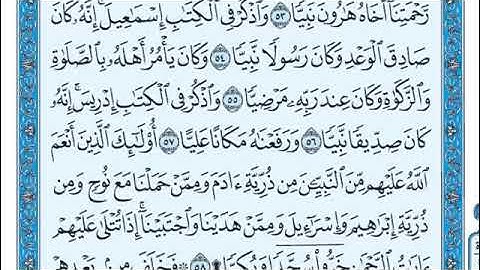 رَّحْمَتِنَآ أَخَاهُ هَٰرُونَ نَبِيًّا ٥٣ وَٱذْكُرْ فِى ٱلْكِتَٰبِ إِسْمَٰعِيلَ ۚ إِنَّهُۥ كَانَ
صَادِقَ ٱلْوَعْدِ وَكَانَ رَسُولًا نَّبِيًّا ٥٤ وَكَانَ يَأْمُرُ أَهْلَهُۥ بِٱلصَّلَوٰةِ
وَٱلزَّكَوٰةِ وَكَانَ عِندَ رَبِّهِۦ مَرْضِيًّا ٥٥ وَٱذْكُرْ فِى ٱلْكِتَٰبِ إِدْرِيسَ ۚ إِنَّهُۥ
كَانَ صِدِّيقًا نَّبِيًّا ٥٦ وَرَفَعْنَٰهُ مَكَانًا عَلِيًّا ٥٧ أُو۟لَٰٓئِكَ ٱلَّذِينَ أَنْعَمَ
ٱللَّهُ عَلَيْهِم مِّنَ ٱلنَّبِيِّـۧنَ مِن ذُرِّيَّةِ ءَادَمَ وَمِمَّنْ حَمَلْنَا مَعَ نُوحٍ وَمِن
ذُرِّيَّةِ إِبْرَٰهِيمَ وَإِسْرَٰٓءِيلَ وَمِمَّنْ هَدَيْنَا وَٱجْتَبَيْنَآ ۚ إِذَا تُتْلَىٰ عَلَيْهِمْ
ءَايَٰتُ ٱلرَّحْمَٰنِ خَرُّوا۟ سُجَّدًا وَبُكِيًّا ۩ ٥٨ فَخَلَفَ مِنۢ بَعْدِهِمْ